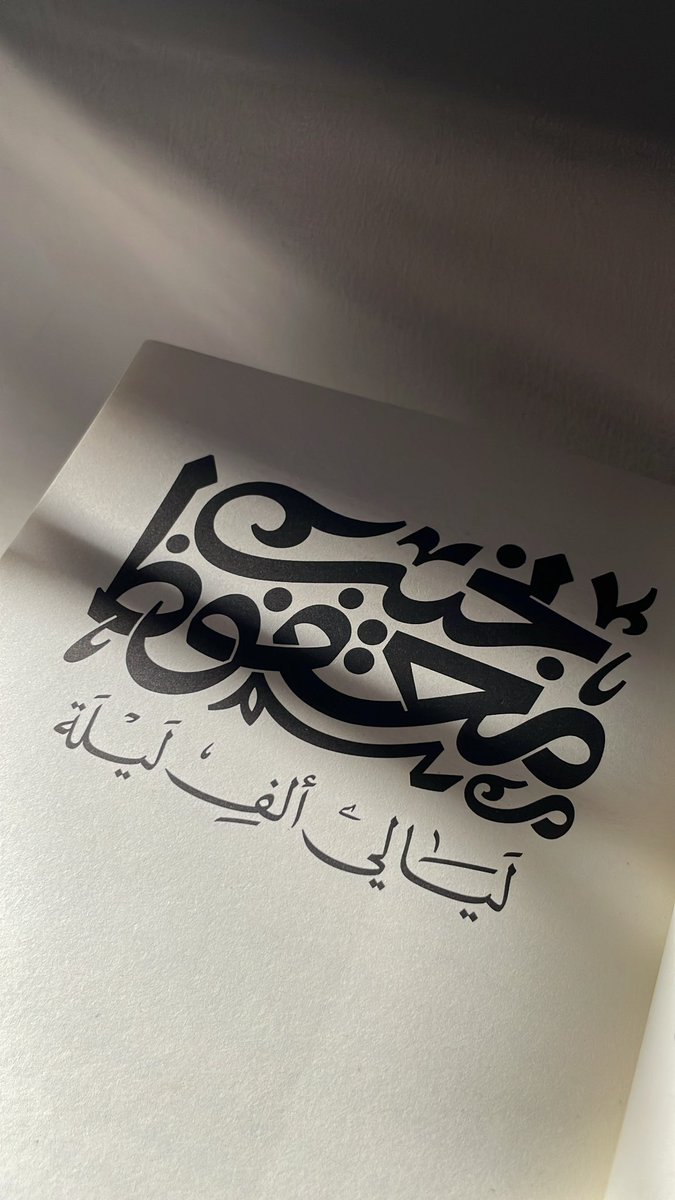 نجيب
محفوظ
لَيَالي ألفِ لَيْلَة